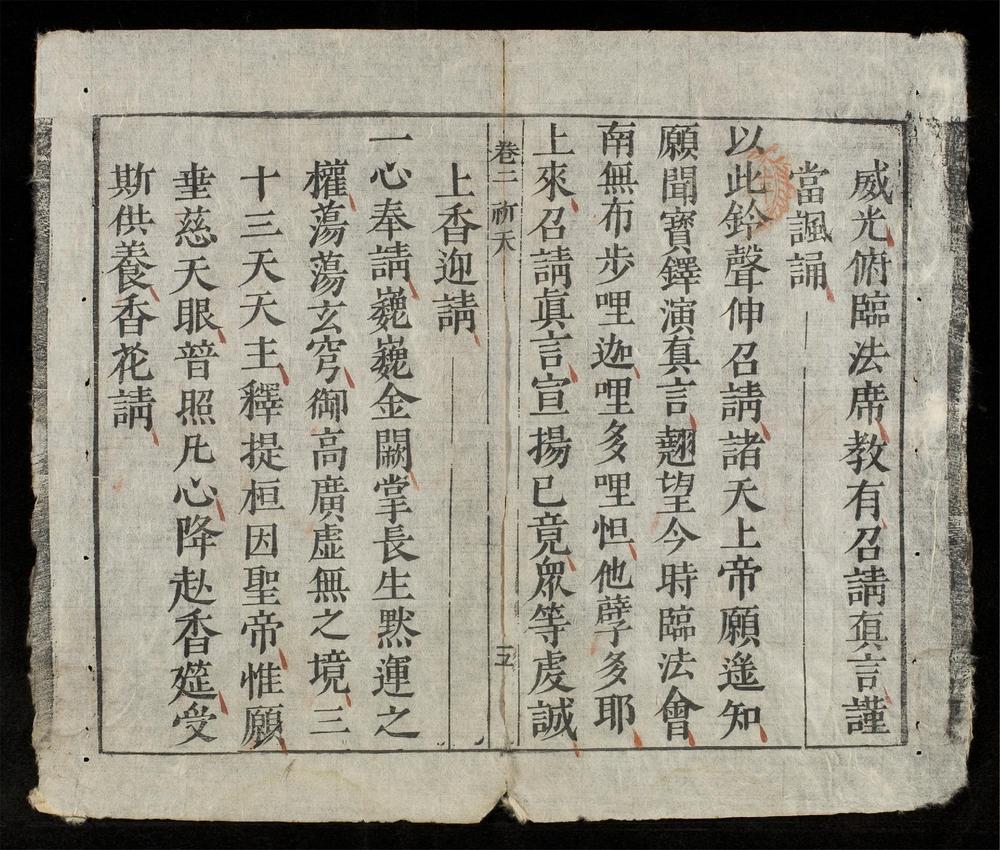 威光俯臨法席教有召請眞言謹
當諷誦
以此鈴聲伸召請諸天上帝願遥知
願聞寳鐸演真言翹望今時臨法會
南無布步哩迦哩多哩怛他孽多耶
上來召請眞言宣揚已竟衆等虔誠
上香迎請
卷二 祈天 五
一心奉請巍巍金闕掌長生黙運之
權蕩蕩玄穹御高廣虛無之境三
十三天天主釋提桓因聖帝惟願
垂慈天眼普照凢心降赴香筵受
斯供養香花請